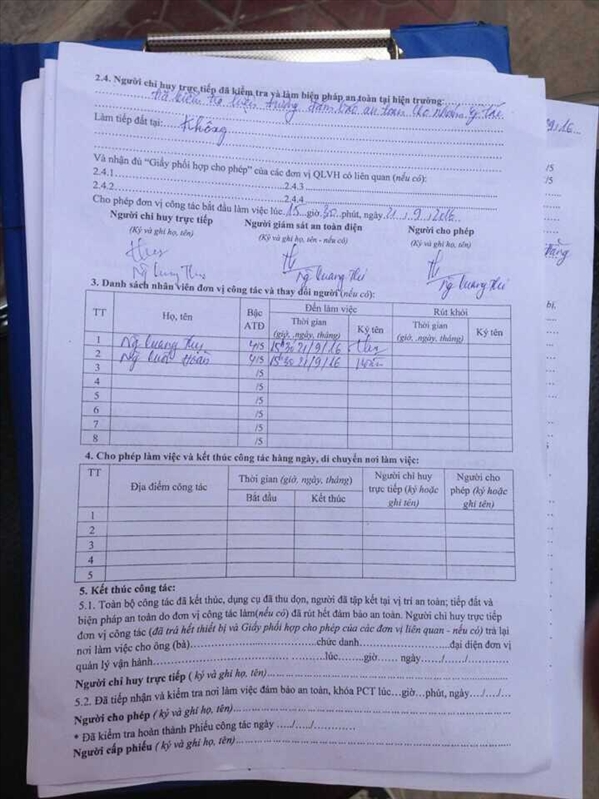 2.4. Người chỉ huy trực tiếp đã kiểm tra và làm biện pháp an toàn tại hiện trường:
đảm bảo an toàn cho nhóm
Làm tiếp đất tại: Không
Và nhận đủ “Giấy phối hợp cho phép” của các đơn vị QLVH có liên quan (nếu có):
2.4.1 2.4.3
2.4.2 2.4.4
Cho phép đơn vị công tác bắt đầu làm việc lúc 15 giờ 30 phút, ngày 21, 9, 2016
Người chỉ huy trực tiếp Người giám sát an toàn điện Người cho phép
(Ký và ghi họ, tên) (Ký và ghi họ, tên - nếu có) (Ký và ghi họ, tên)
Ng Quang Ng Quang Ng Quang
3. Danh sách nhân viên đơn vị công tác và thay đổi người (nếu có):
TT Họ, tên Bậc ATĐ Đến làm việc Rút khỏi
Thời gian (giờ, ngày, tháng) Ký tên Thời gian (giờ, ngày, tháng) Ký tên
1 Ng Quang 4/5 15h30 21/9/16
2 Ng 4/5 15h30 21/9/16
3 /5
4 /5
5 /5
6 /5
7 /5
8 /5
4. Cho phép làm việc và kết thúc công tác hàng ngày, di chuyển nơi làm việc:
TT Địa điểm công tác Thời gian (giờ, ngày, tháng) Người chỉ huy trực tiếp (ký hoặc ghi tên) Người cho phép (ký hoặc ghi tên)
Bắt đầu Kết thúc
1
2
3
4
5
5. Kết thúc công tác:
5.1. Toàn bộ công tác đã kết thúc, dụng cụ đã thu dọn, người đã tập kết tại vị trí an toàn; tiếp đất và
biện pháp an toàn do đơn vị công tác làm(nếu có) đã rút hết đảm bảo an toàn. Người chỉ huy trực tiếp
đơn vị công tác (đã trả hết thiết bị và Giấy phối hợp cho phép của các đơn vị liên quan - nếu có) trả lại
nơi làm việc cho ông (bà)..........chức danh..........đại diện đơn vị
quản lý vận hành..........lúc.......giờ...... ngày....../....../......
Người chỉ huy trực tiếp ( ký và ghi họ, tên)..........
5.2. Đã tiếp nhận và kiểm tra nơi làm việc đảm bảo an toàn, khóa PCT lúc...giờ...phút, ngày..../..../....
Người cho phép ( ký và ghi họ, tên)..........
* Đã kiểm tra hoàn thành Phiếu công tác ngày ..../..../..........
Người cấp phiếu ( ký và ghi họ, tên)..........